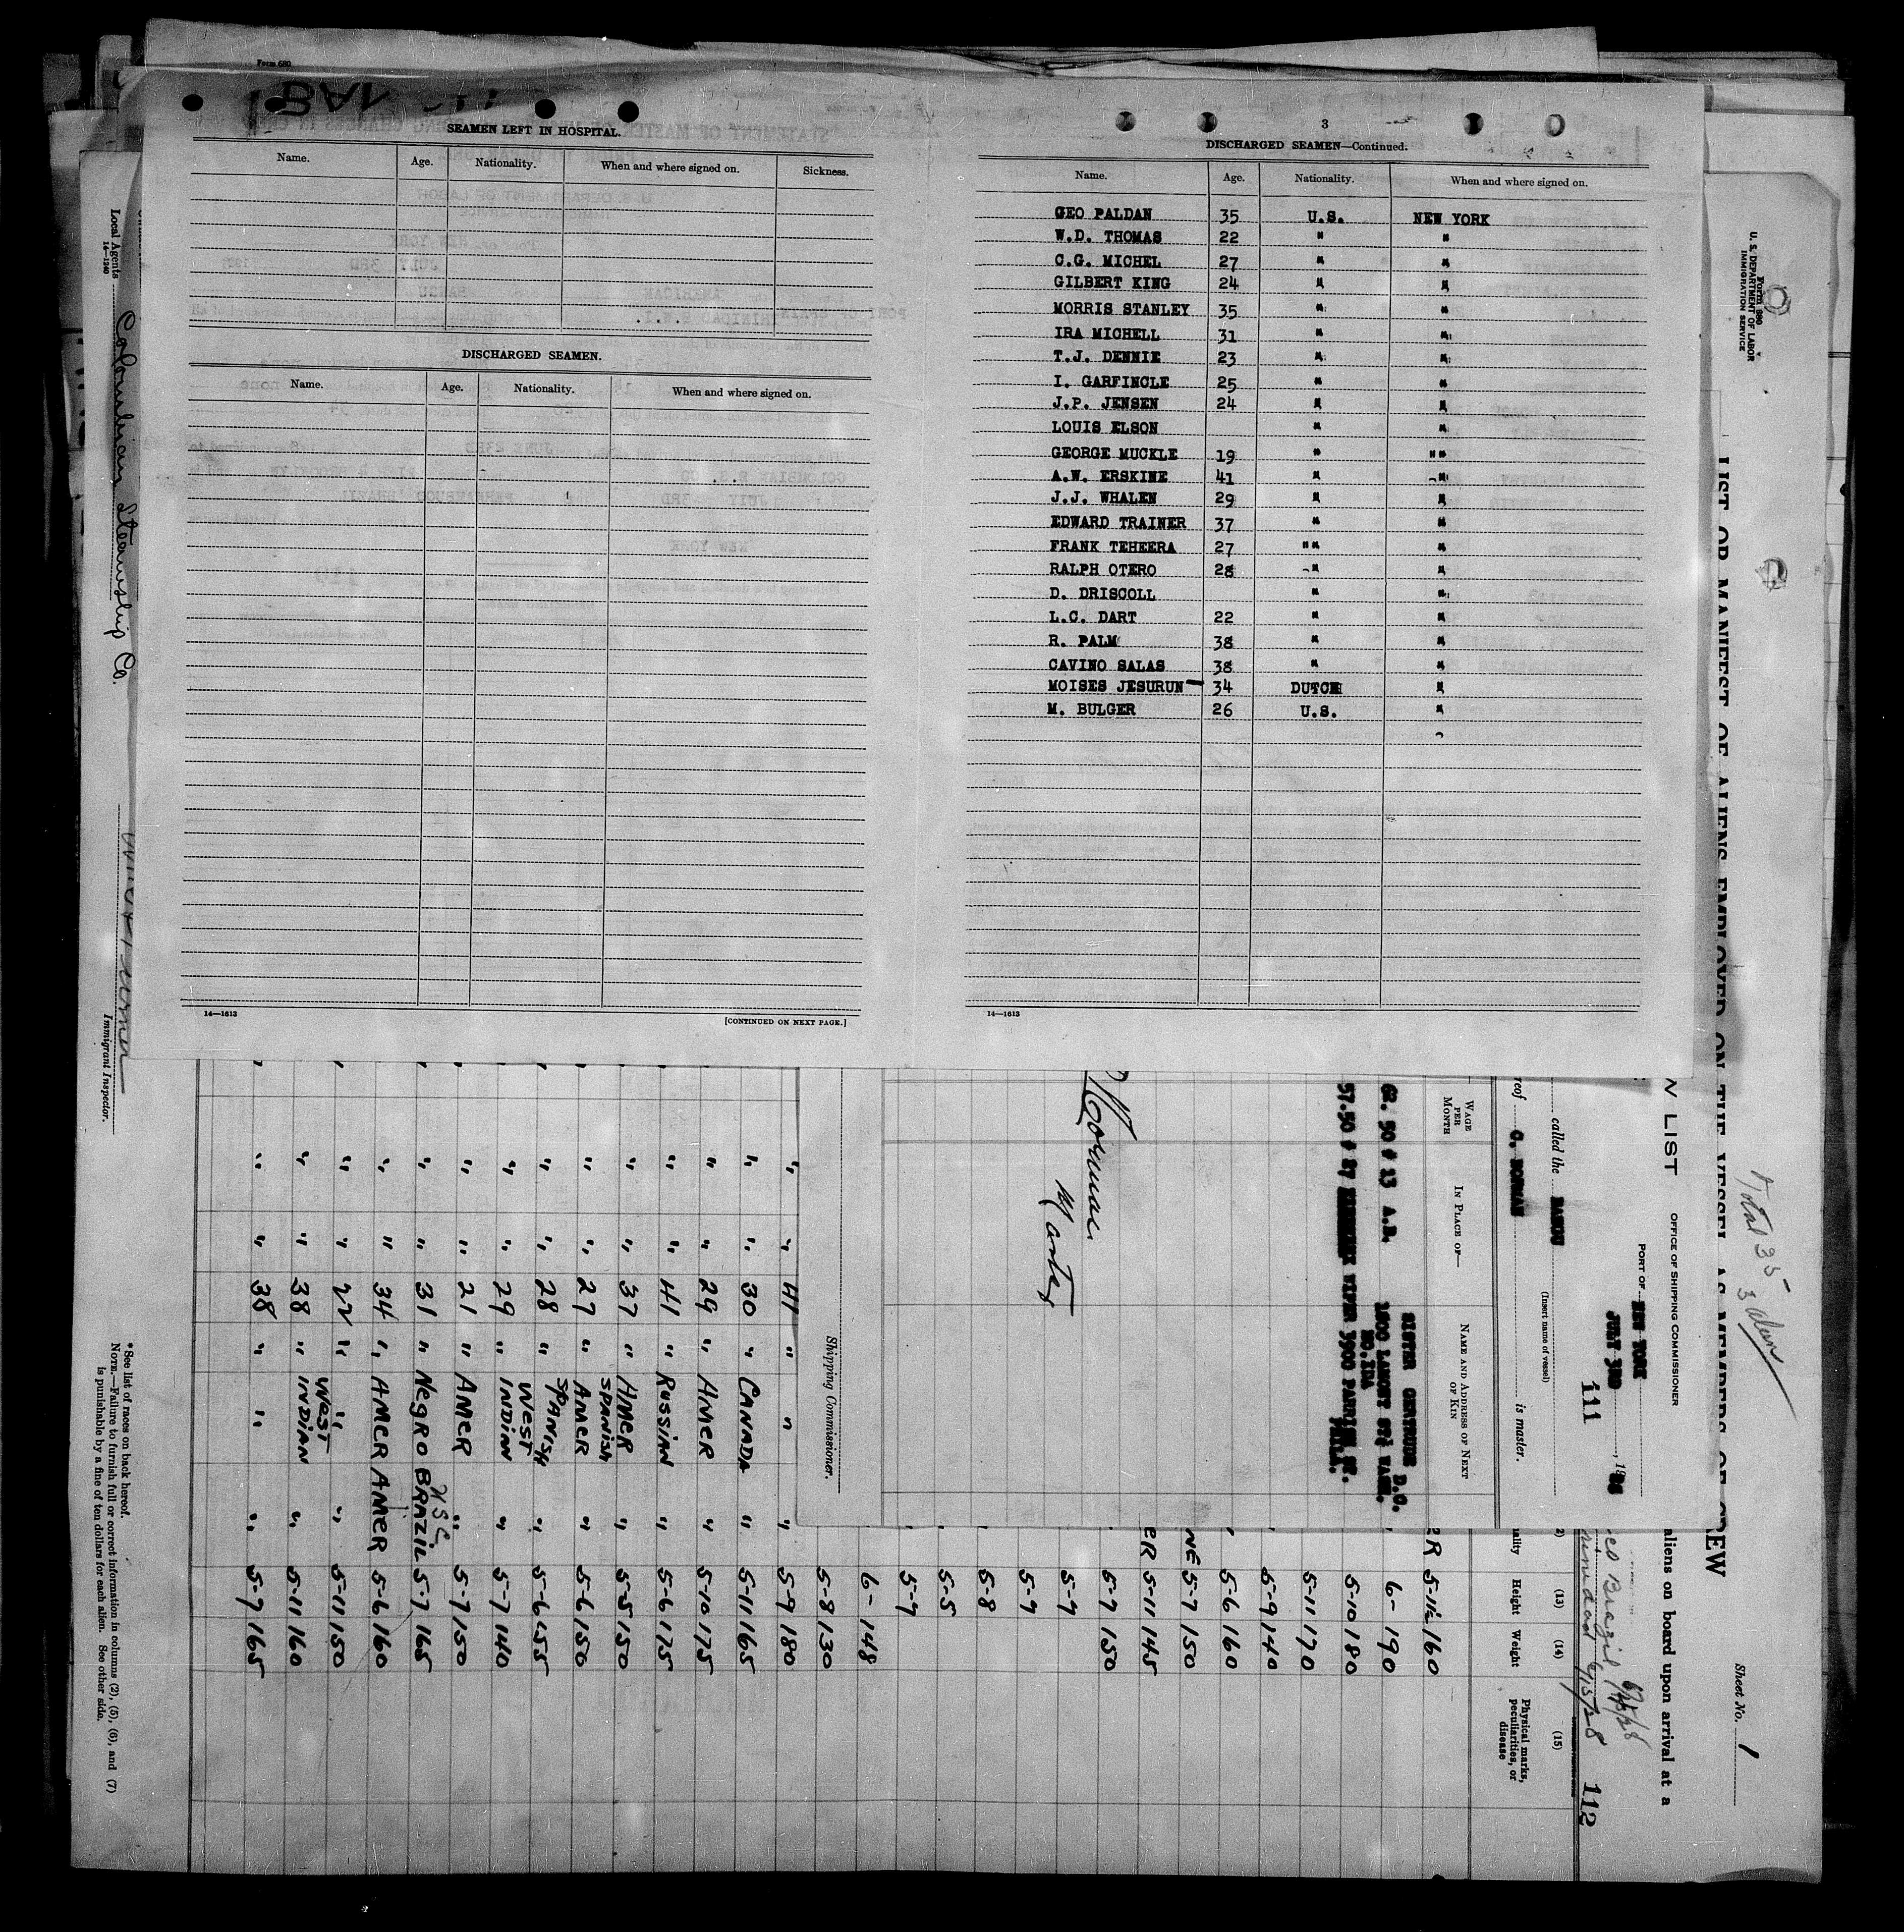 Form 680
SEAMEN LEFT IN HOSPITAL.
Name. Age. Nationality. When and where signed on. Sickness.
DISCHARGED SEAMEN.
Name. Age. Nationality. When and where signed on.
14—1613
[CONTINUED ON NEXT PAGE.]
3
DISCHARGED SEAMEN—Continued.
Name. Age. Nationality. When and where signed on.
GEO PALDAN 35 U.S. NEW YORK
W.D. THOMAS 22 " "
C.G. MICHEL 27 " "
GILBERT KING 24 " "
MORRIS STANLEY 35 " "
IRA MICHELL 31 " "
T.J. DENNIE 23 " "
I. GARFINCLE 25 " "
J.P. JENSEN 24 " "
LOUIS ELSON " "
GEORGE MUCKLE 19 " ""
A.W. ERSKINE 41 " "
J.J. WHALEN 29 " "
EDWARD TRAINER 37 " "
FRANK TEHEERA 27 "" "
RALPH OTERO 28 " "
D. DRISCOLL " "
L.C. DART 22 " "
R. PALM 38 " "
CAVINO SALAS 38 " "
MOISES JESURUN 34 DUTCH "
M. BULGER 26 U.S. "
14—1613
Form 680
U. S. DEPARTMENT OF LABOR
IMMIGRATION SERVICE
LIST OR MANIFEST OF ALIENS EMPLOYED ON THE VESSEL AS MEMBERS OF CREW
Total 35
3 alien
Sheet No. 1
aliens on board upon arrival at a
Brazil
6/15/28
112
N LIST
OFFICE OF SHIPPING COMMISSIONER
PORT OF NEW YORK
JULY 3RD, 19
111
called the BANGU
(Insert name of vessel)
reof C. NORMAN is master.
WAGE PER MONTH
IN PLACE OF—
NAME AND ADDRESS OF NEXT OF KIN
62.50 # 13 A.B. SISTER GERTRUDE
57.50 # 27
Norman
Master
Shipping Commissioner.
(13) Height
(14) Weight
(15) Physical marks, peculiarities, or disease
ER 5-11½ 160
6- 190
5-10 180
5-11 170
5-9 140
5-6 160
NE 5-7 150
ER 5-11 145
5-7 150
5-7
5-7
5-8
5-5
5-7
6- 148
5-8 130
" " 41 " " " 5-9 180
" " 30 " CANADA " 5-11 165
" " 29 " AMER " 5-10 175
" " 41 " RUSSIAN " 5-6 175
" " 37 " AMER " 5-5 150
" " 27 " SPANISH AMER " 5-6 150
" " 28 " SPANISH " 5-6 155
" " 29 " WEST INDIAN " 5-7 140
" " 21 " AMER " 5-7 150
" " 31 " NEGRO BRAZIL 5-7 165
USC
" " 34 " AMER AMER 5-6 160
" " 22 " " " 5-11 150
" " 38 " WEST INDIAN " 5-11 160
" " 38 " " " 5-7 165
Local Agents Colombian Steamship Co.
14—1240
Immigrant Inspector.
*See list of races on back hereof.
NOTE.—Failure to furnish full or correct information in columns (2), (5), (6), and (7)
is punishable by a fine of ten dollars for each alien. See other side.